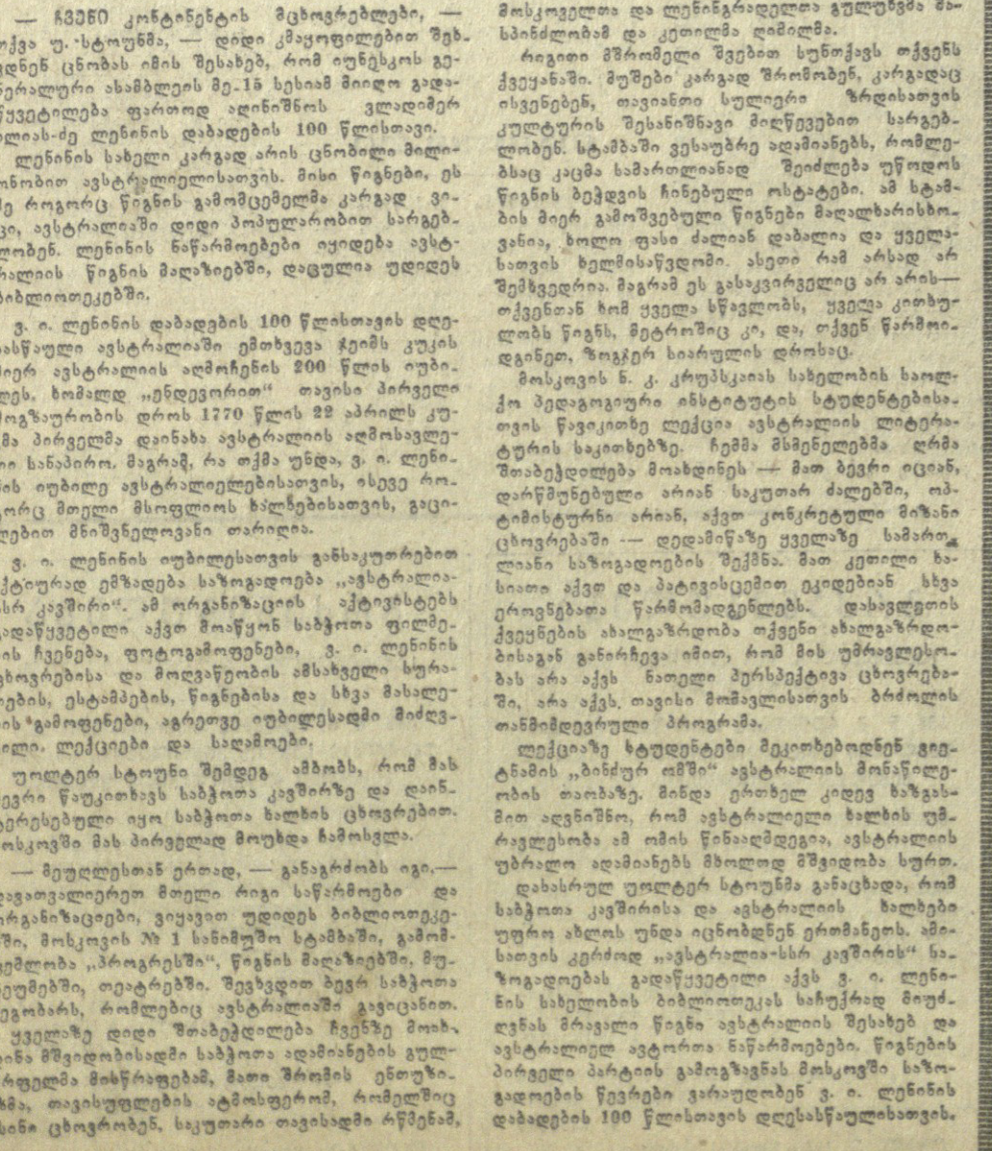 — ჩვენი კონტინენტის მცხოვრებლები, —
თქვა უ. სტოუნმა, — დიდი კმაყოფილებით შეხ-
ვდნენ ცნობას იმის შესახებ, რომ იუნესკოს გე-
ნერალური ასამბლეის მე-15 სესიამ მიიღო გადა-
წყვეტილება ფართოდ აღინიშნოს ვლადიმერ
ილიას-ძე ლენინის დაბადების 100 წლისთავი.
ლენინის სახელი კარგად არის ცნობილი მილი-
ონობით ავსტრალიელისათვის. მისი წიგნები, ეს
მე როგორც წიგნის გამომცემელმა კარგად ვი-
ცი, ავსტრალიაში დიდი პოპულარობით სარგებ-
ლობენ. ლენინის ნაწარმოებები იყიდება ავსტ-
რალიის წიგნის მაღაზიებში, დაცულია უდიდეს
ბიბლიოთეკებში.
ვ. ი. ლენინის დაბადების 100 წლისთავის დღე-
სასწაული ავსტრალიაში ემთხვევა ჯეიმს კუკის
მიერ ავსტრალიის აღმოჩენის 200 წლის იუბი-
ლეს. ხომალდ „ენდევორით“ თავისი პირველი
მოგზაურობის დროს 1770 წლის 22 აპრილს კუ-
კმა პირველმა დაინახა ავსტრალიის აღმოსავლე-
თი სანაპირო. მაგრამ, რა თქმა უნდა, ვ. ი. ლენი-
ნის იუბილე ავსტრალიელებისათვის, ისევე რო-
გორც მთელი მსოფლიოს ხალხებისათვის, გაცი-
ლებით მნიშვნელოვანი თარიღია.
ვ. ი. ლენინის იუბილესათვის განსაკუთრებით
აქტიურად ემზადება საზოგადოება „ავსტრალია-
სსრ კავშირი“. ამ ორგანიზაციის აქტივისტებს
გადაწყვეტილი აქვთ მოაწყონ საბჭოთა ფილმე-
ბის ჩვენება, ფოტოგამოფენები, ვ. ი. ლენინის
ცხოვრებისა და მოღვაწეობის ამსახველი სურა-
თების, ესტამპების, წიგნებისა და სხვა მასალე-
ბის გამოფენები, აგრეთვე იუბილესადმი მიძღვ-
ნილი. ლექციები და საღამოები.
უოლტერ სტოუნი შემდეგ ამბობს, რომ მას
ბევრი წაუკითხავს საბჭოთა კავშირზე და დაინ-
ტერესებული იყო საბჭოთა ხალხის ცხოვრებით.
მოსკოვში მას პირველად მოუხდა ჩამოსვლა.
— მეუღლესთან ერთად, — განაგრძობს იგი,—
დავათვალიერეთ მთელი რიგი საწარმოები და
ორგანიზაციები, ვიყავით უდიდეს ბიბლიოთეკე-
ბში, მოსკოვის № 1 სანიმუშო სტამბაში, გამომ-
ცემლობა „პროგრესში“, წიგნის მაღაზიებში, მუ-
ზეუმებში, თეატრებში. შევხვდით ბევრ საბჭოთა
მეგობარს, რომლებიც ავსტრალიაში გავიცანით.
ყველაზე დიდი შთაბეჭდილება ჩვენზე მოახ-
დინა მშვიდობისადმი საბჭოთა ადამიანების გულ-
წრფელმა მისწრაფებამ, მათი შრომის ენთუზი-
აზმა, თავისუფლების ატმოსფერომ, რომელშიც
ისინი ცხოვრობენ, საკუთარი თავისადმი რწმენამ,
მოსკოველთა და ლენინგრადელთა გულუხვმა მა-
სპინძლობამ და კეთილმა ღიმილმა.
რიგითი მშრომელი შვებით სუნთქავს თქვენს
ქვეყანაში. მუშები კარგად შრომობენ, კარგადაც
ისვენებენ, თავიანთი სულიერი ზრდისათვის
კულტურის შესანიშნავი მიღწევებით სარგებ-
ლობენ. სტამბაში ვესაუბრე ადამიანებს, რომლე-
ბსაც კაცმა სამართლიანად შეიძლება უწოდოს
წიგნის ბეჭდვის ჩინებული ოსტატები. ამ სტამ-
ბის მიერ გამოშვებული წიგნები მაღალხარისხო-
ვანია, ხოლო ფასი ძალიან დაბალია და ყველა-
სათვის ხელმისაწვდომი. ასეთი რამ არსად არ
შემხვედრია. მაგრამ ეს გასაკვირველიც არ არის—
თქვენთან ხომ ყველა სწავლობს, ყველა კითხუ-
ლობს წიგნს, მეტროშიც კი, და, თქვენ წარმოი-
დგინეთ, ზოგჯერ სიარულის დროსაც.
მოსკოვის ნ. კ. კრუპსკაიას სახელობის საოლ-
ქო პედაგოგიური ინსტიტუტის სტუდენტებისა-
თვის წავიკითხე ლექცია ავსტრალიის ლიტერა-
ტურის საკითხებზე. ჩემმა მსმენელებმა ღრმა
შთაბეჭდილება მოახდინეს — მათ ბევრი იციან,
დარწმუნებული არიან საკუთარ ძალებში, ოპ-
ტიმისტურნი არიან, აქვთ კონკრეტული მიზანი
ცხოვრებაში — დედამიწაზე ყველაზე სამართ-
ლიანი საზოგადოების შექმნა. მათ კეთილი ხა-
სიათი აქვთ და პატივისცემით ეკიდებიან სხვა
ეროვნებათა წარმომადგენლებს. დასავლეთის
ქვეყნების ახალგაზრდობა თქვენი ახალგაზრდო-
ბისაგან განირჩევა იმით, რომ მის უმრავლესო-
ბას არა აქვს ნათელი პერსპექტივა ცხოვრება-
ში, არა აქვს თავისი მომავლისათვის ბრძოლის
თანმიმდევრული პროგრამა.
ლექციაზე სტუდენტები მეკითხებოდნენ ვიე-
ტნამის „ბინძურ ომში“ ავსტრალიის მონაწილე-
ობის თაობაზე. მინდა ერთხელ კიდევ ხაზგას-
მით აღვნიშნო, რომ ავსტრალიელი ხალხის უმ-
რავლესობა ამ ომის წინააღმდეგია, ავსტრალიის
უბრალო ადამიანებს მხოლოდ მშვიდობა სურთ.
დასასრულ უოლტერ სტოუნმა განაცხადა, რომ
საბჭოთა კავშირისა და ავსტრალიის ხალხები
უფრო ახლოს უნდა იცნობდნენ ერთმანეთს. ამი-
სათვის კერძოდ „ავსტრალია-სსრ კავშირის“ სა-
ზოგადოებას გადაწყვეტილი აქვს ვ. ი. ლენი-
ნის სახელობის ბიბლიოთეკას საჩუქრად მიუძ-
ღვნას მრავალი წიგნი ავსტრალიის შესახებ და
ავსტრალიელ ავტორთა ნაწარმოებები. წიგნების
პირველი პარტიის გამოგზავნას მოსკოვში საზო-
გადოების წევრები ვარაუდობენ ვ. ი. ლენინის
დაბადების 100 წლისთავის დღესასწაულისათვის.